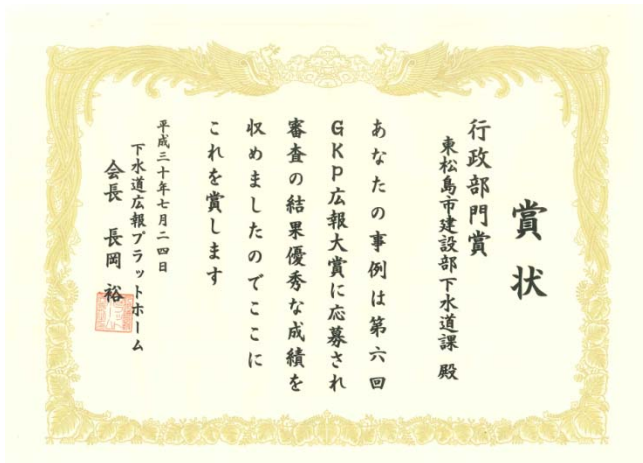 賞状
行政部門賞
東松島市建設部下水道課 殿
あなたの事例は第六回
GKP広報大賞に応募され
審査の結果優秀な成績を
収めましたのでここに
これを賞します
平成三十年七月二四日
下水道広報プラットホーム
会長 長岡 裕